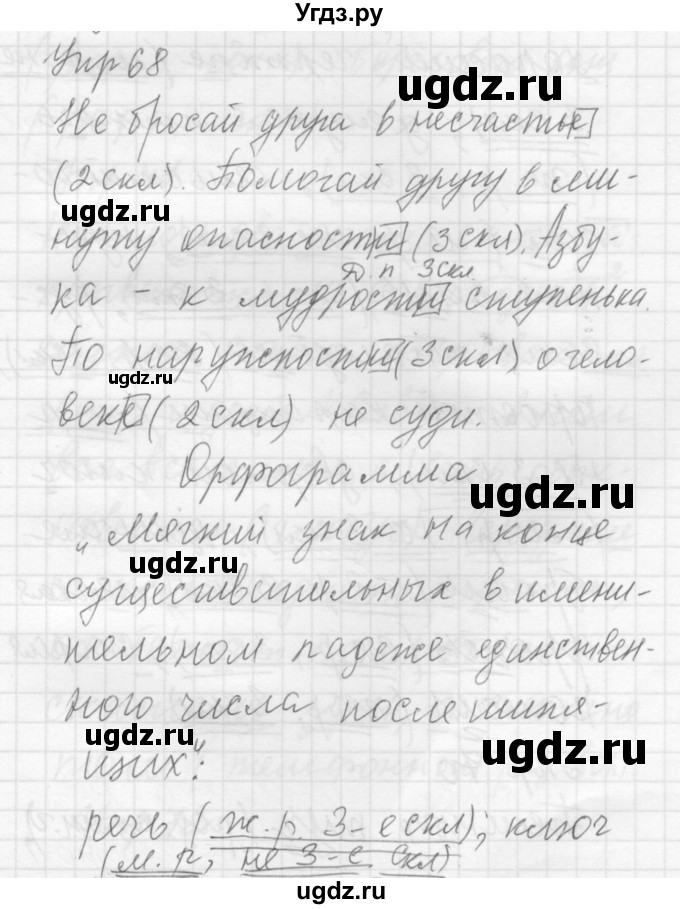 Угдз.ру
Упр 68
ugdz.ru
Не бросай друга в несчастье
(2 скл). Помогай другу в ми-
ugdz.ru
нуту опасности (3 скл). Азбу-
Д. п 3 скл
ка – к мудрости ступенька.
По наружности (3 скл) о чело-
ugdz.ru
веке (2 скл) не суди.
Орфограмма
ugdz.ru
„Мягкий знак на конце
ugdz.ru
существительных в имени-
тельном падеже единствен-
ного числа после шипя-
ugdz.ru
ugdz.ru
щих“:
речь (ж. р. 3-е скл); ключ
(м. р, не 3-е скл)
ugdz.ru